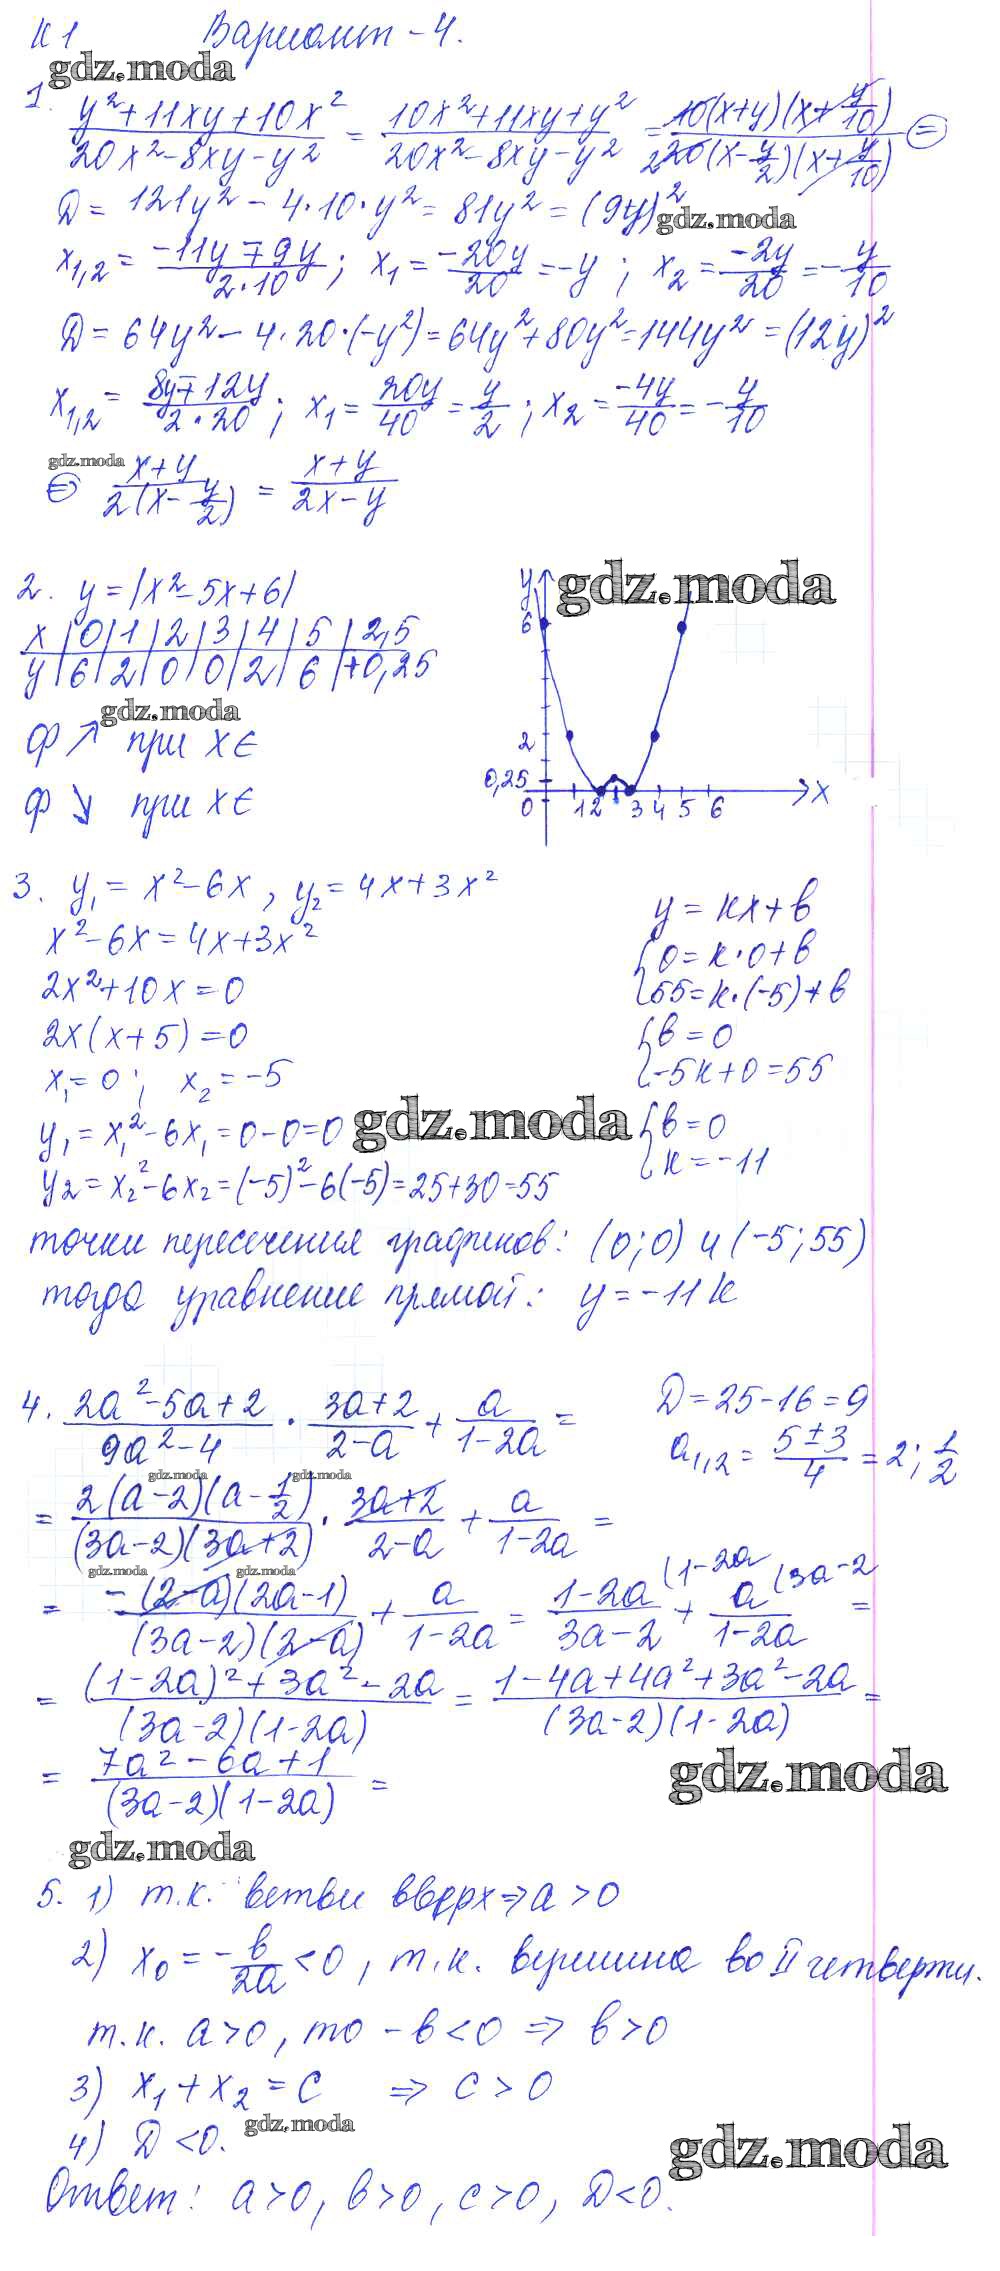 К 1 Вариант - 4.
gdz.moda
1. (y²+11xy+10x²)/(20x²-8xy-y²) = (10x²+11xy+y²)/(20x²-8xy-y²) = 10(x+y)(x+y/10)/2 20(x-y/2)(x+y/10) ⊜
Д = 121y² - 4·10·y² = 81y² = (9y)²
gdz.moda
x₁,₂ = (-11y∓9y)/(2·10); x₁ = -20y/20 = -y; x₂ = -2y/20 = -y/10
Д = 64y² - 4·20·(-y²) = 64y²+80y² = 144y² = (12y)²
x₁,₂ = (8y∓12y)/(2·20); x₁ = 20y/40 = y/2; x₂ = -4y/40 = -y/10
gdz.moda
⊜ (x+y)/(2(x-y/2)) = (x+y)/(2x-y)
2. y = |x²-5x+6|
x | 0 | 1 | 2 | 3 | 4 | 5 | 2,5
y | 6 | 2 | 0 | 0 | 2 | 6 | +0,25
gdz.moda
ф ↗ при x ∈
ф ↘ при x ∈
y
gdz.moda
6
2
0,25
0 1 2 3 4 5 6 x
3. y₁ = x²-6x, y₂ = 4x+3x²
x²-6x = 4x+3x²
2x²+10x = 0
2x(x+5) = 0
x₁ = 0; x₂ = -5
y₁ = x₁²-6x₁ = 0-0 = 0
gdz.moda
y₂ = x₂²-6x₂ = (-5)²-6(-5) = 25+30 = 55
y = кx+в
{0 = к·0+в
55 = к·(-5)+в
{в = 0
-5к+0 = 55
{в = 0
к = -11
точки пересечения графиков: (0;0) и (-5;55)
тогда уравнение прямой: y = -11к
4. (2a²-5a+2)/(9a²-4) · (3a+2)/(2-a) + a/(1-2a) =
Д = 25-16 = 9
a₁,₂ = (5±3)/4 = 2; 1/2
gdz.moda gdz.moda
= 2(a-2)(a-1/2)/((3a-2)(3a+2)) · (3a+2)/(2-a) + a/(1-2a) =
gdz.moda gdz.moda
= -(2-a)(2a-1)/((3a-2)(2-a)) + a/(1-2a) = (1-2a)/(3a-2) (1-2a + a/(1-2a) (3a-2 =
= ((1-2a)²+3a²-2a)/((3a-2)(1-2a)) = (1-4a+4a²+3a²-2a)/((3a-2)(1-2a)) =
= (7a²-6a+1)/((3a-2)(1-2a)) =
gdz.moda
gdz.moda
5. 1) т.к. ветви вверх ⇒ a > 0
2) x₀ = -в/2a < 0, т.к. вершина во II четверти.
т.к. a > 0, то -в < 0 ⇒ в > 0
3) x₁+x₂ = c ⇒ c > 0
4) Д < 0.
gdz.moda
gdz.moda
Ответ: a>0, в>0, c>0, Д<0.